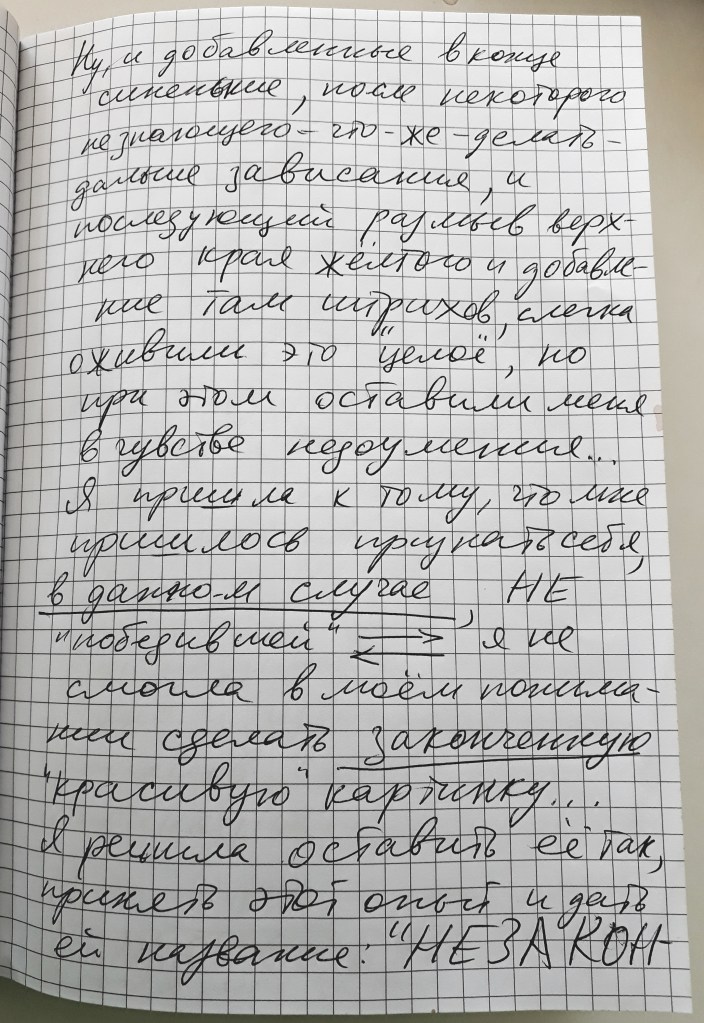 Ну, и добавленные в конце
синенькие, после некоторого
незнающего-что-же-делать-
дальше зависания, и
последующий размыв верх-
него края жёлтого и добавле-
ние там штрихов, слегка
оживили это "целоё", но
при этом оставили меня
в чувстве недоумения...
Я пришла к тому, что мне
пришлось признать себя,
в данном случае, НЕ
"победившей" ⇄ я не
смогла в моём понима-
нии сделать законченную
"красивую" картинку...
Я решила оставить её так,
принять этот опыт и дать
ей название: "НЕЗАКОН-